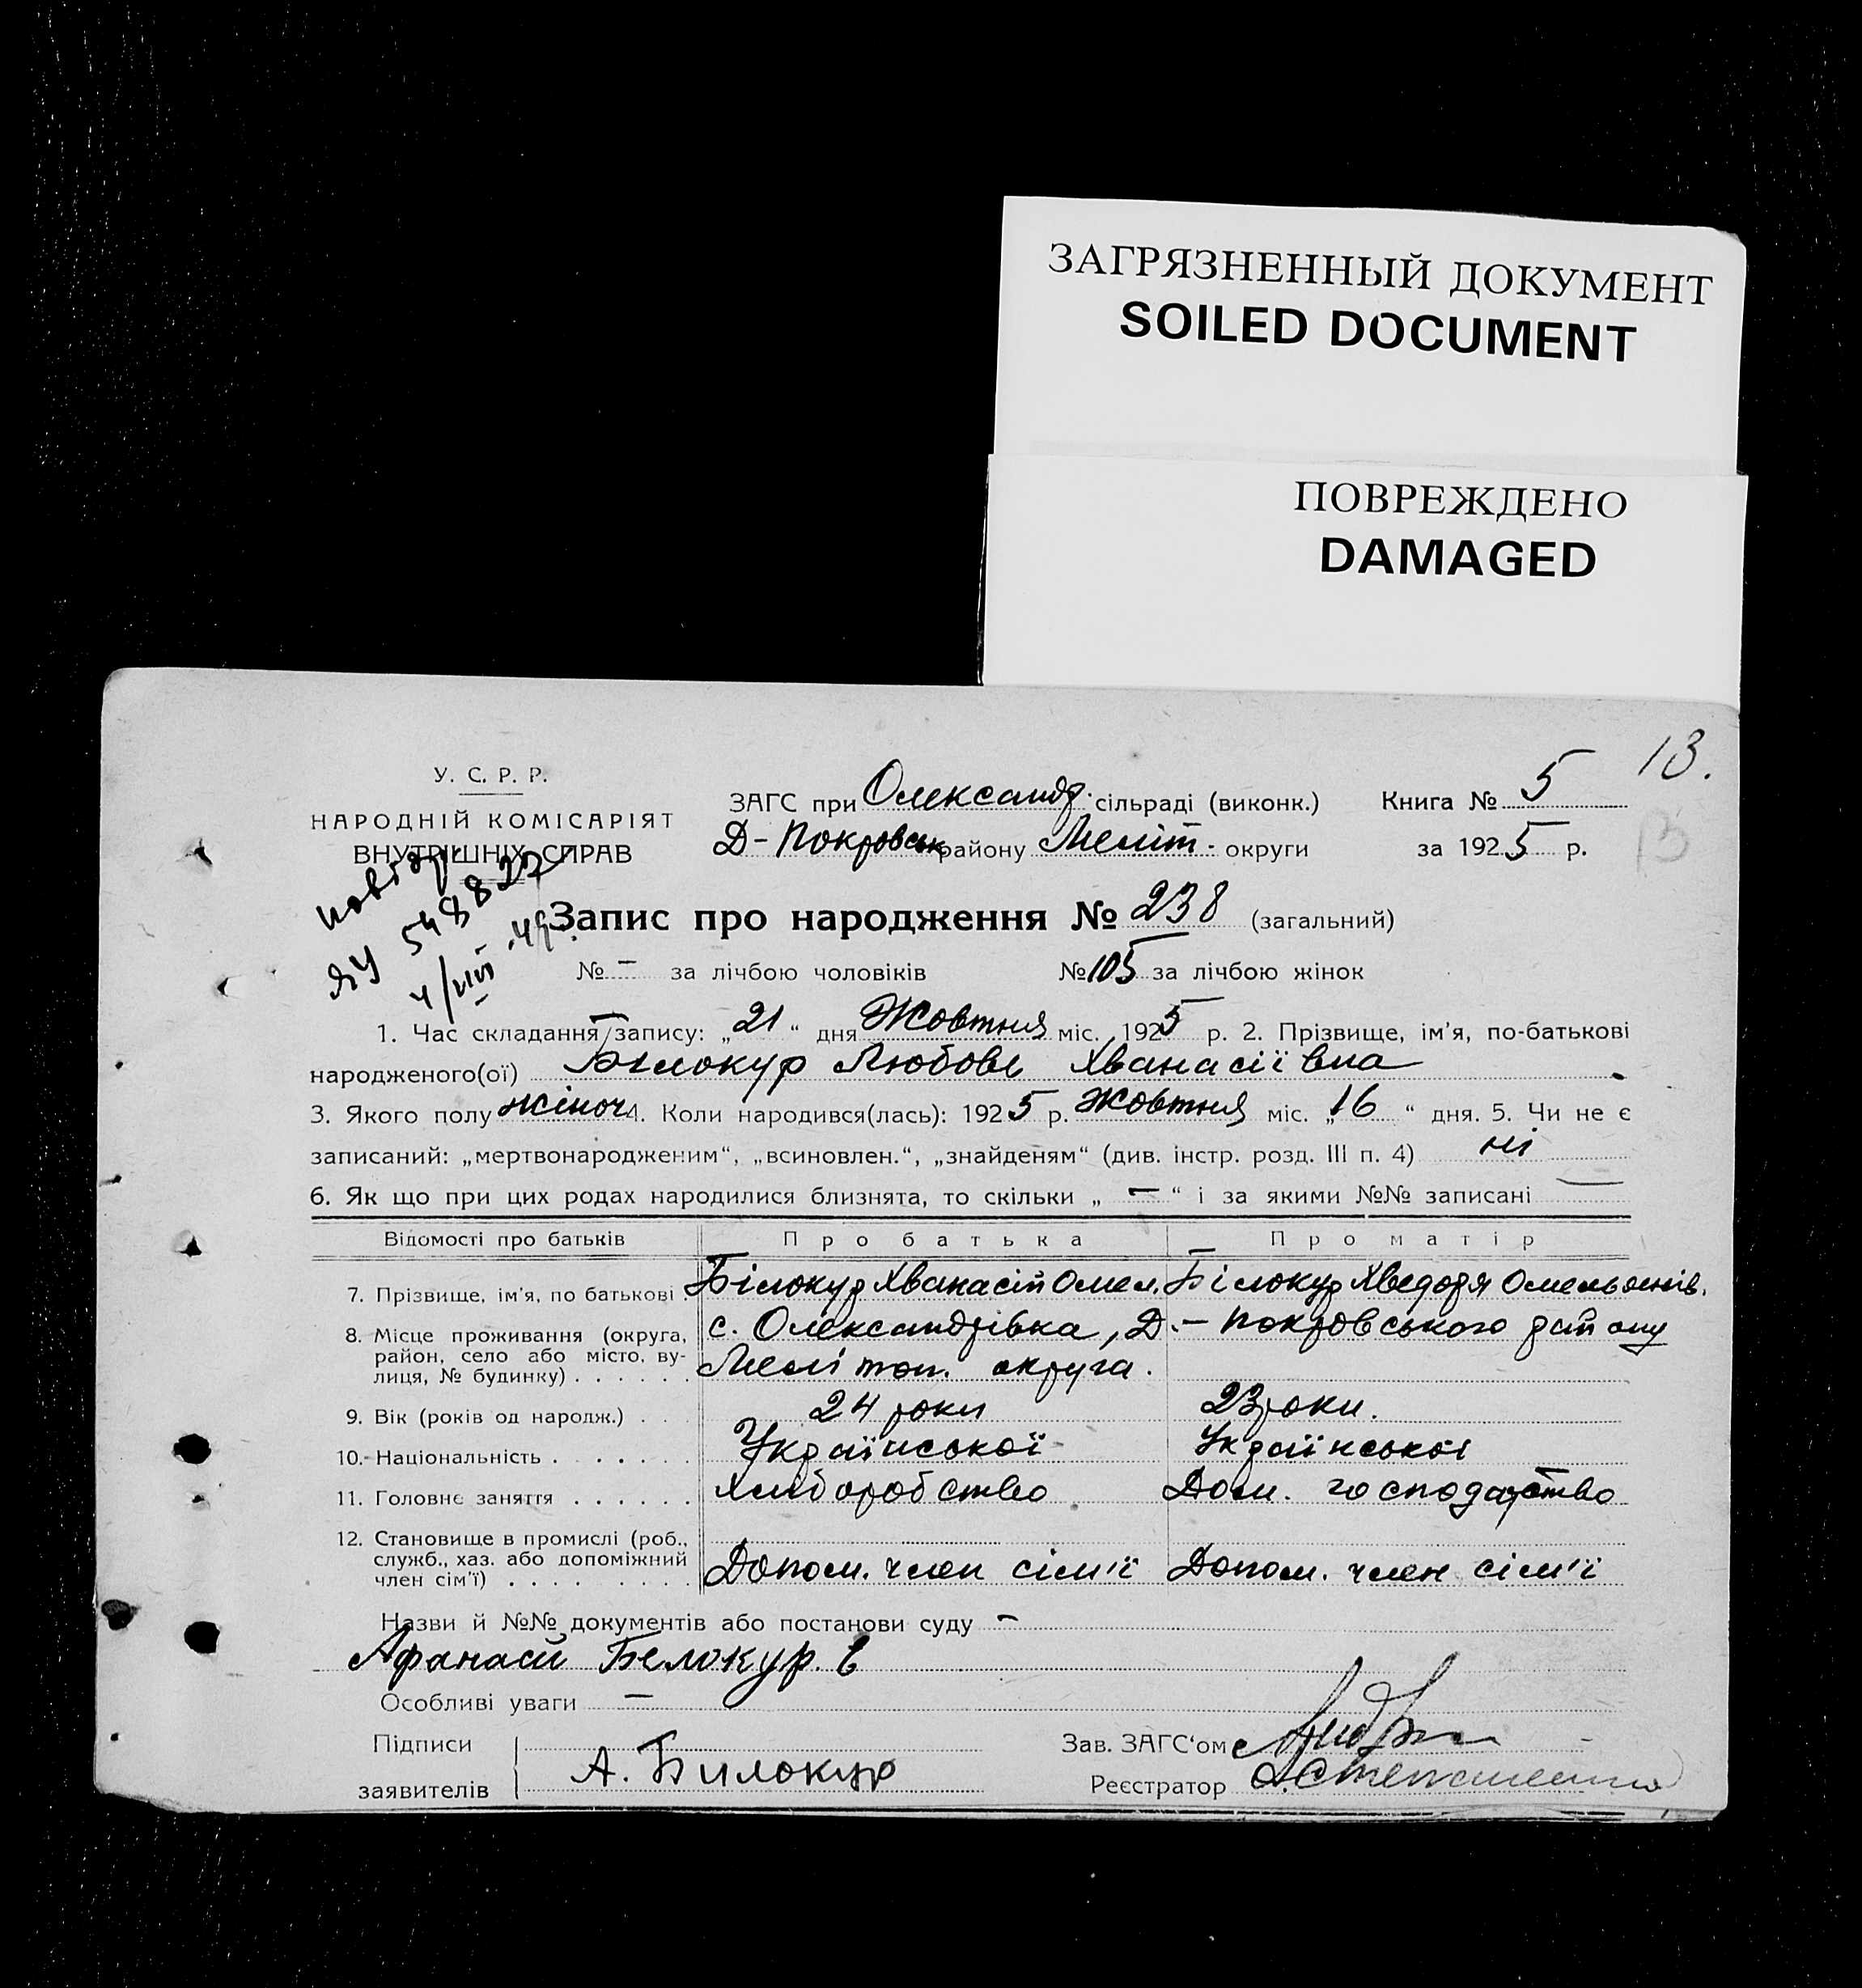 ЗАГРЯЗНЕННЫЙ ДОКУМЕНТ
SOILED DOCUMENT
ПОВРЕЖДЕНО
DAMAGED
13.
13
У. С. Р. Р.
НАРОДНІЙ КОМІСАРІЯТ
ВНУТРІШНІХ СПРАВ
ЗАГС при Олександр. сільраді (виконк.) Книга № 5
Д-Покровськ району Меліт. округи за 1925 р.
повтор.
ЯУ 548827
4/VIII.49.
Запис про народження № 238 (загальний)
№ — за лічбою чоловіків № 105 за лічбою жінок
1. Час складання запису: „21“ дня Жовтня міс. 1925 р. 2. Прізвище, ім'я, по-батькові
народженого(ої) Білокур Любовь Хванасіївна
3. Якого полу жіноч. 4. Коли народився(лась): 1925 р. Жовтня міс. „16“ дня. 5. Чи не є
записаний: „мертвонародженим“, „всиновлен.“, „знайденям“ (див. інстр. розд. III п. 4) ні
6. Як що при цих родах народилися близнята, то скільки „ — “ і за якими №№ записані —
Відомості про батьків Про батька Про матір
7. Прізвище, ім'я, по батькові Білокур Хванасій Омел. Білокур Хведоря Омельянів.
8. Місце проживання (округа, район, село або місто, вулиця, № будинку) с. Олександрівка, Д.-Покровського району
Мелітоп. округа.
9. Вік (років од народж.) 24 роки 23 роки.
10. Національність Української Української
11. Головне заняття Хліборобство Дом. господарство
12. Становище в промислі (роб., служб., хаз. або допоміжний член сім'ї) Допом. член сім'ї Допом. член сім'ї
Назви й №№ документів або постанови суду —
Афанасй Белокур.
Особливі уваги —
Підписи
заявителів А. Билокур
Зав. ЗАГС'ом
Реєстратор